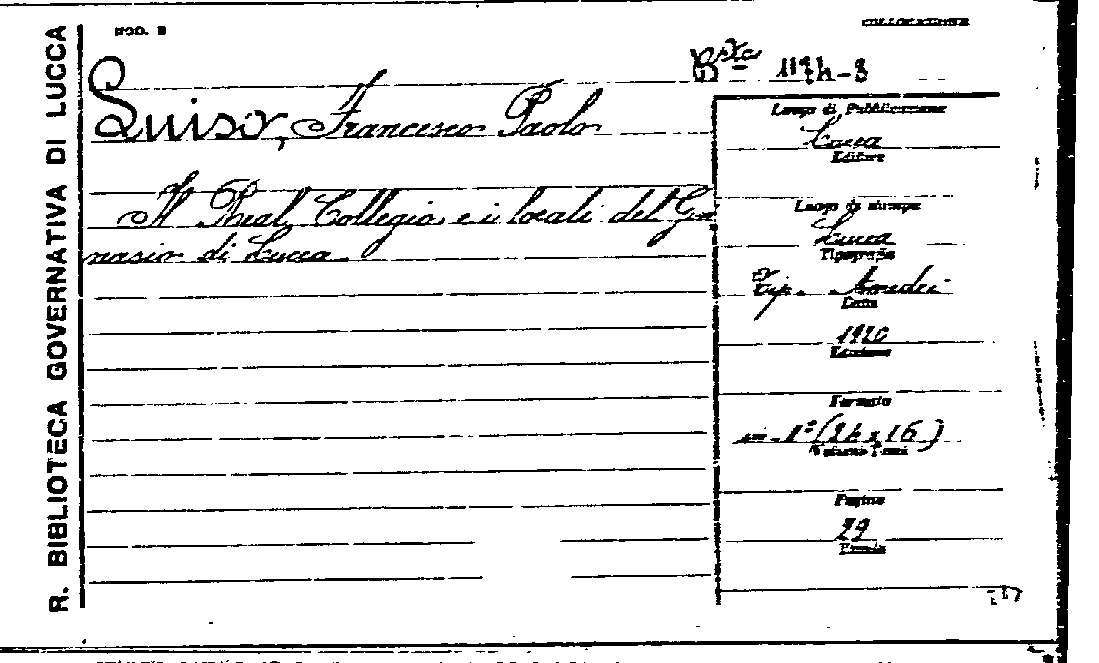 R. BIBLIOTECA GOVERNATIVA DI LUCCA
MOD. B
COLLOCAZIONE
Bsta
Luiso, Francesco Paolo
Il Real Collegio e i locali del Gin
nasio di Lucca
Luogo di Pubblicazione
Lucca
Editore
Luogo di stampa
Lucca
Tipografia
Tip. Amedei
Data
1920
Edizione
Formato
in-1° (26x16)
Volume Tomi
Pagine
29